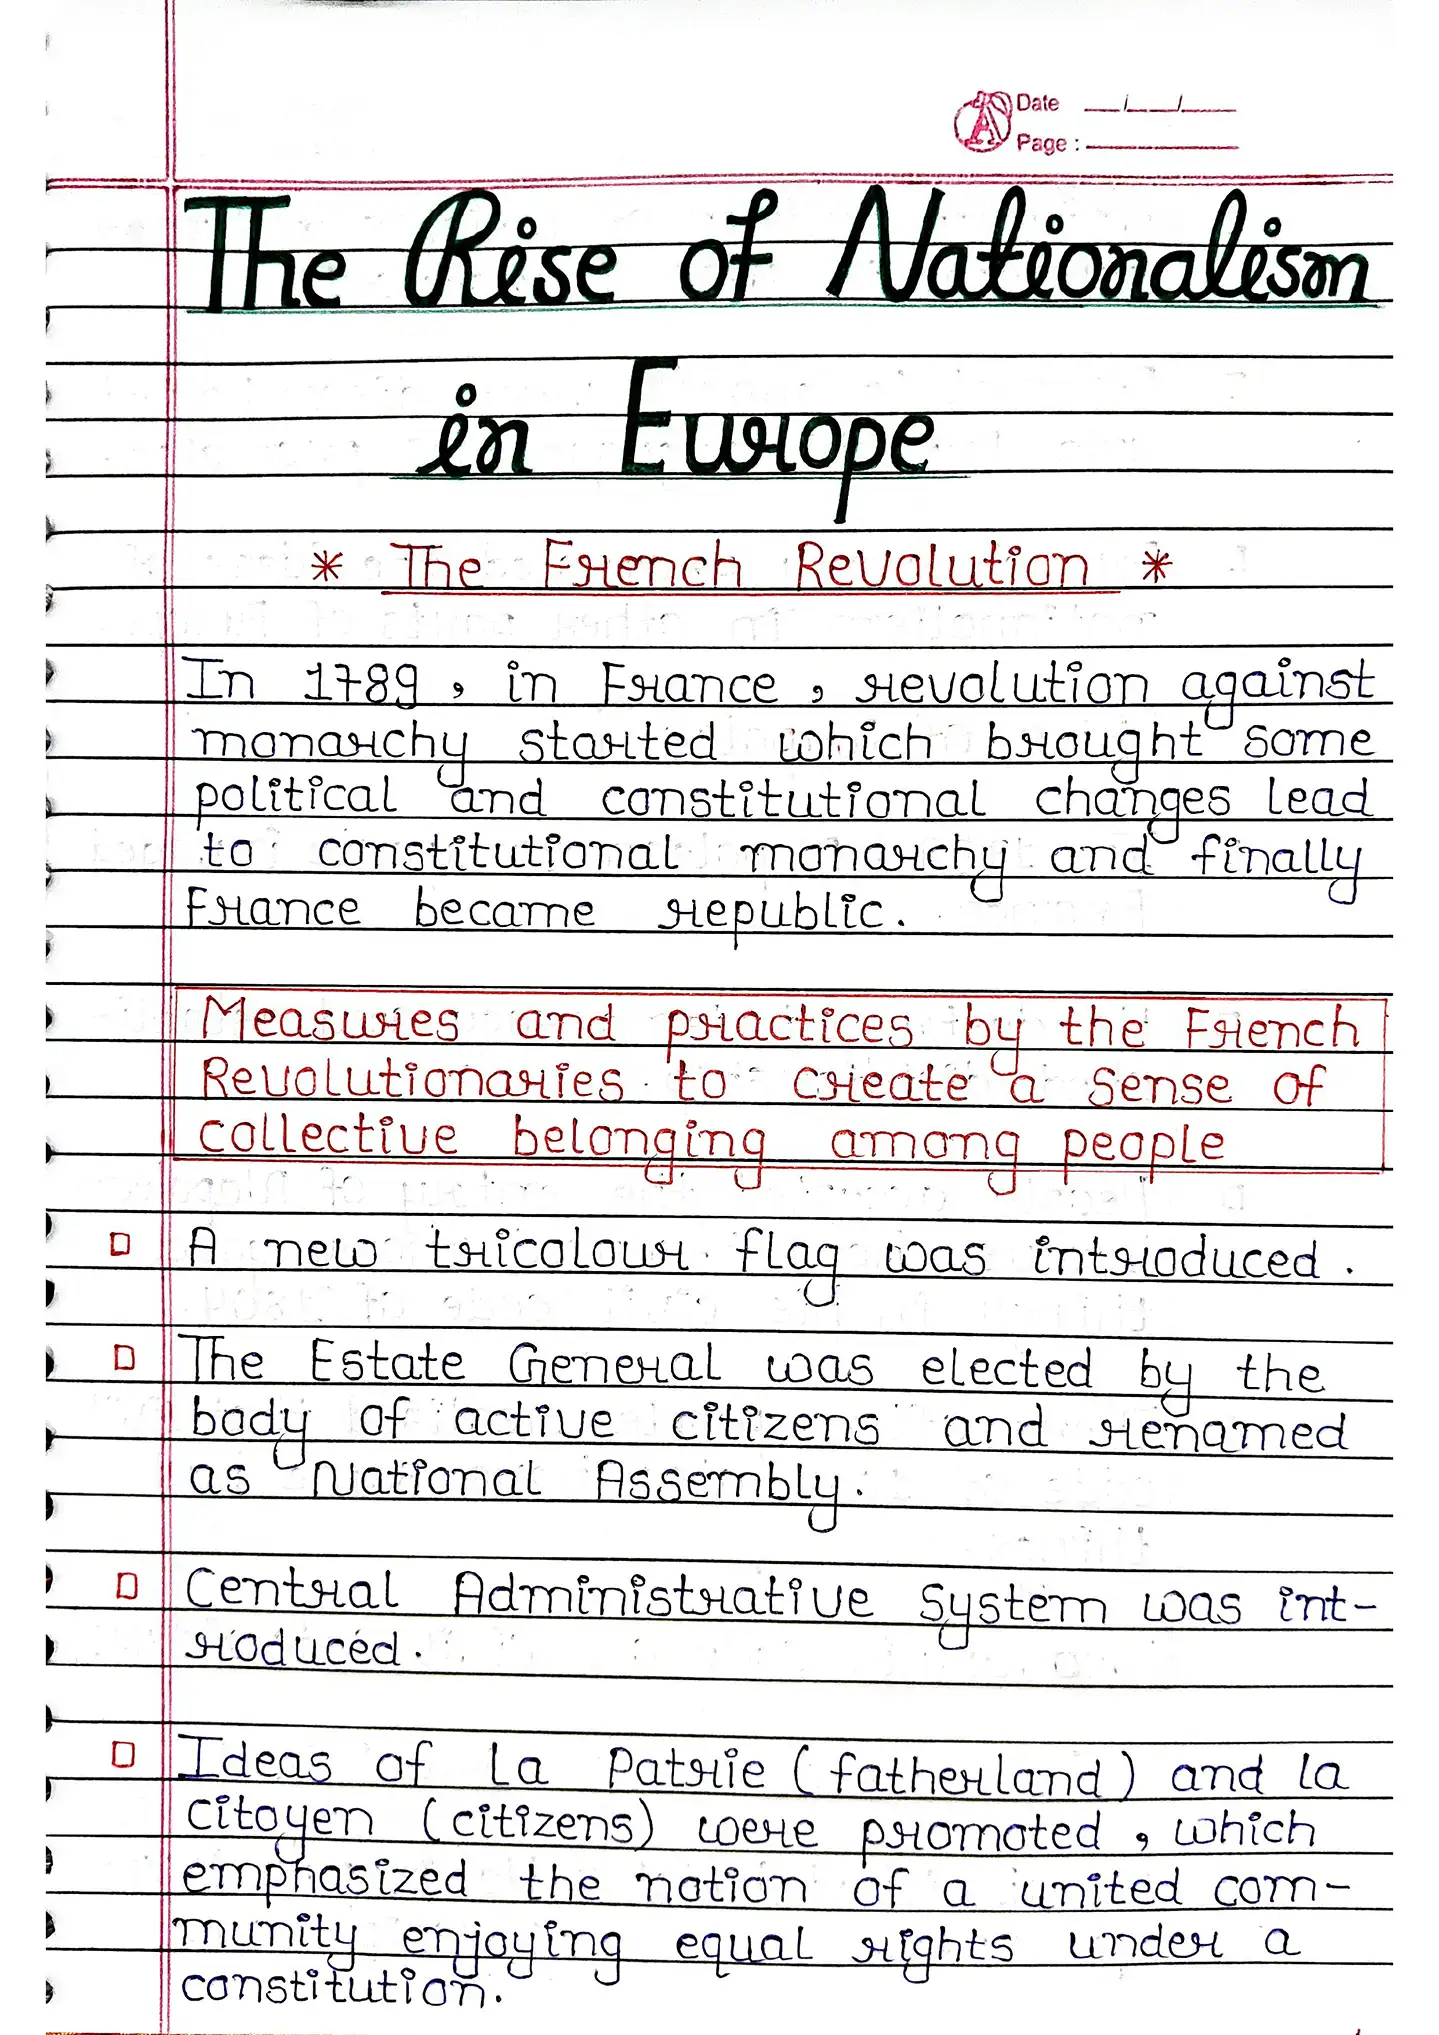 Date __/__/__
Page :
The Rise of Nationalism
in Europe
* The French Revolution *
In 1789, in France, revolution against
monarchy started which brought some
political and constitutional changes lead
to constitutional monarchy and finally
France became republic.
Measures and practices by the French
Revolutionaries to create a sense of
collective belonging among people
□ A new tricolour flag was introduced.
□ The Estate General was elected by the
body of active citizens and renamed
as National Assembly.
□ Central Administrative System was int-
roduced.
□ Ideas of La Patrie (fatherland) and la
citoyen (citizens) were promoted, which
emphasized the notion of a united com-
munity enjoying equal rights under a
constitution.